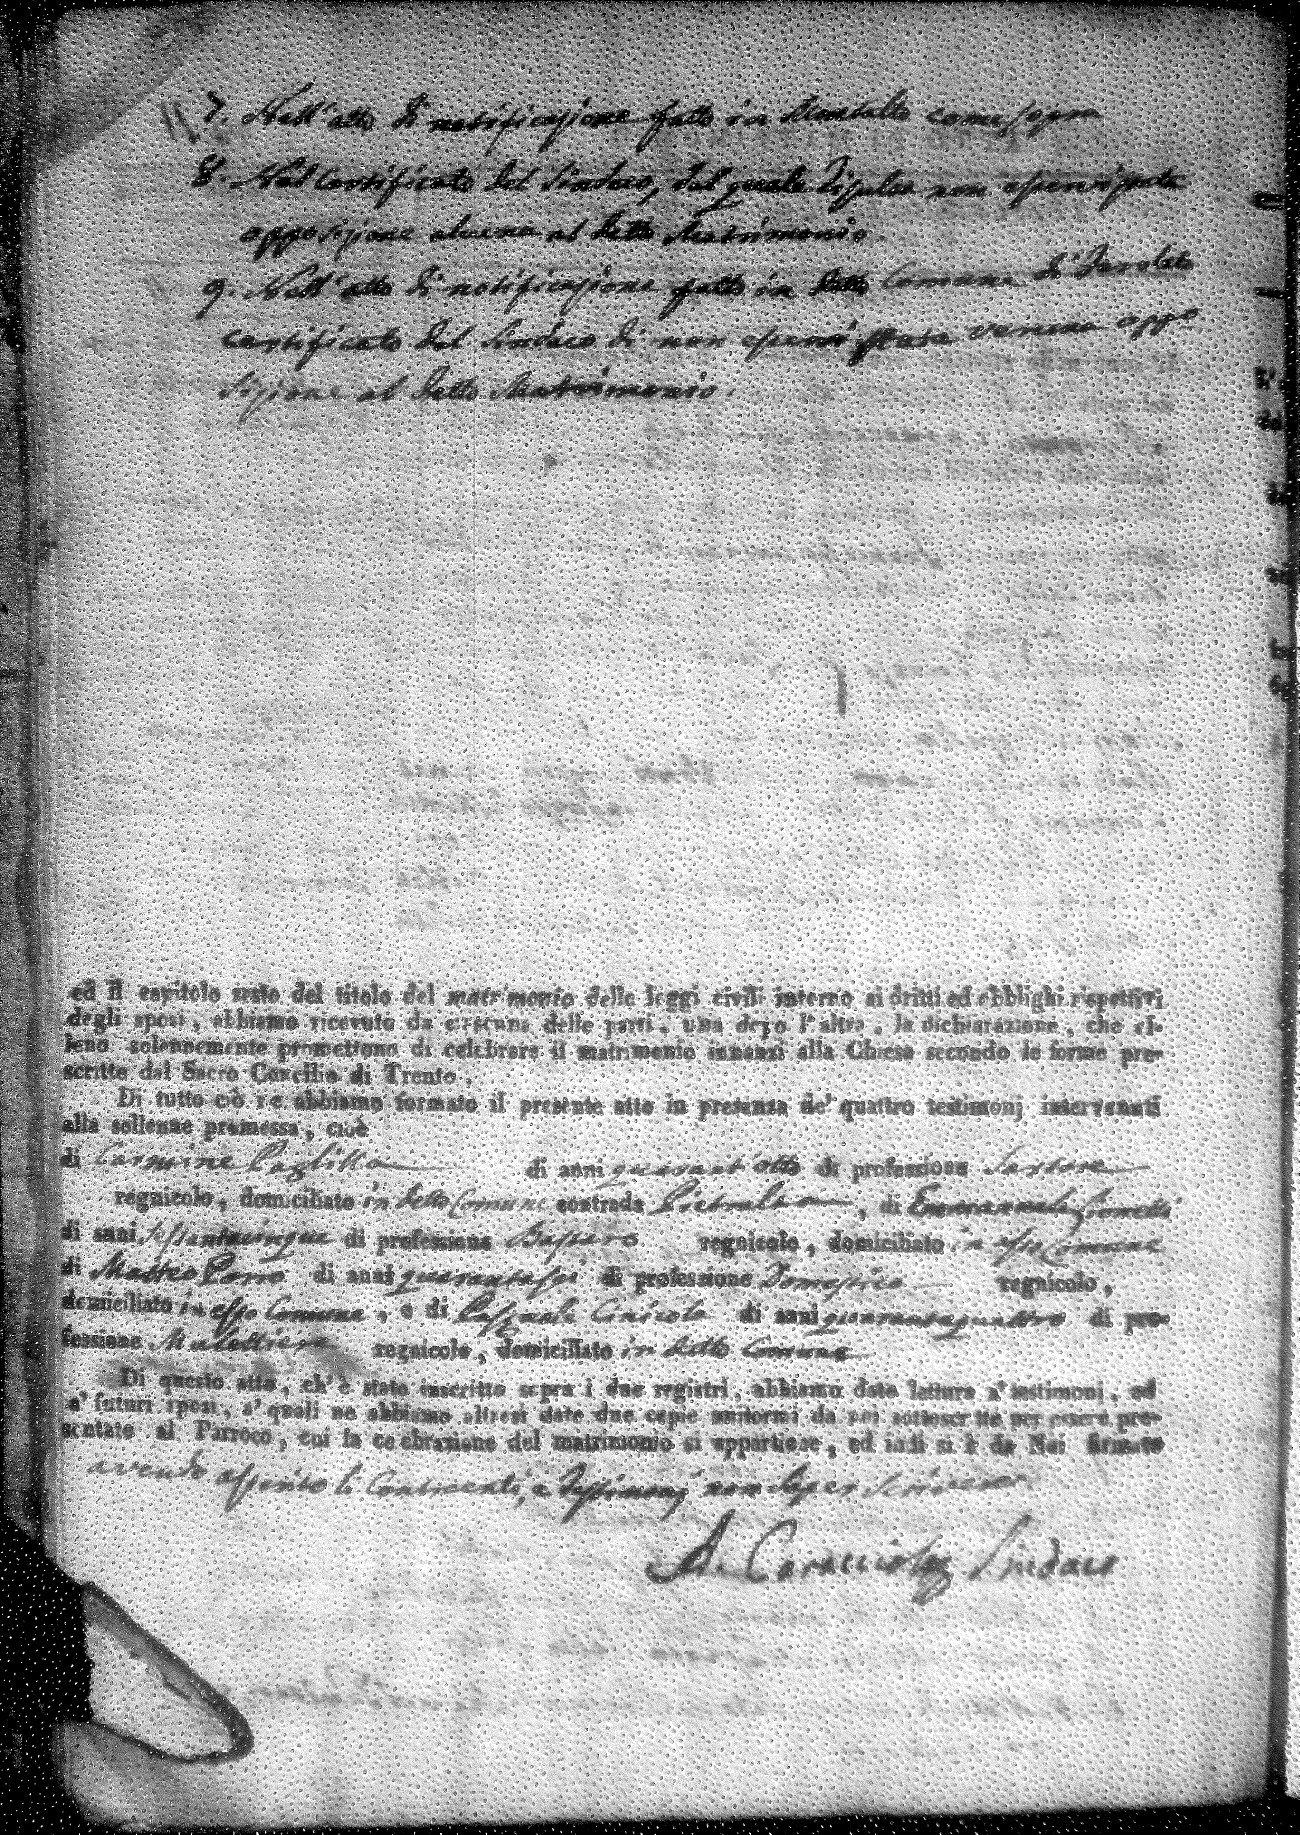 7. Nell'atto di notificazione fatto in Montalto come sopra
8. Nel certificato del Sindaco, dal quale risulta non esservi stata
opposizione alcuna al detto Matrimonio.
9. Nell'atto di notificazione fatto in detto Comune di
certificato del Sindaco di non esservi stata veruna oppo
sizione al detto Matrimonio.
ed il capitolo sesto del titolo del matrimonio delle leggi civili intorno ai dritti ed obblighi rispettivi
degli sposi, abbiamo ricevuto da ciascuna delle parti, una dopo l'altra, la dichiarazione, che el-
leno solennemente promettono di celebrare il matrimonio innanzi alla Chiesa secondo le forme pre-
scritte dal Sacro Concilio di Trento.
Di tutto ciò ne abbiamo formato il presente atto in presenza de' quattro testimonj intervenuti
alla sollenne promessa, cioè
di Carmine di anni quarant'otto di professione Sartore
regnicolo, domiciliato in detto Comune contrada , di Emmanuele
di anni sessantacinque di professione regnicolo, domiciliato in esso Comune
di Matteo Porro di anni quarantasei di professione Domestico regnicolo,
domiciliato in esso Comune, e di Pasquale di anni quarantaquattro di pro-
fessione Mulattiere regnicolo, domiciliato in detto Comune
Di questo atto, ch'è stato inscritto sopra i due registri, abbiamo dato lettura a' testimonj, ed
a' futuri sposi, a' quali ne abbiamo altresì date due copie uniformi da noi sottoscritte per essere pre-
sentate al Parroco, cui la celebrazione del matrimonio si appartiene, ed indi si è da Noi firmato
avendo asserito li Contraenti, e Testimonj non saper scrivere
A. Caracciolo Sindaco